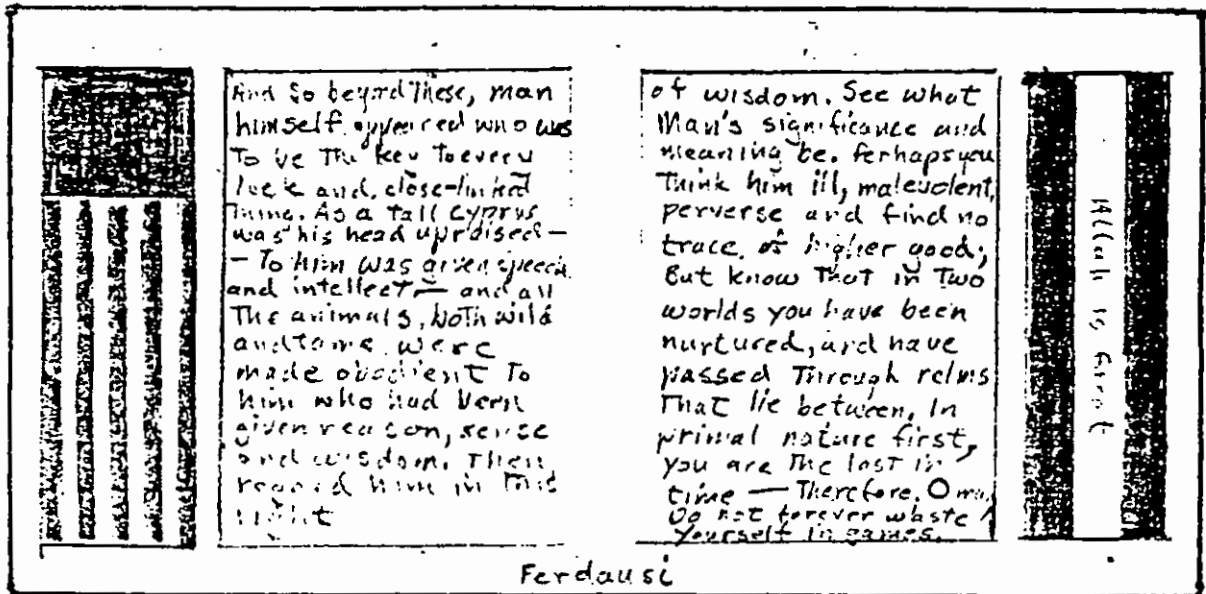 And So beyond These, man
himself appeared who was
To be The key To every
lock and close-linked
Thing. As a tall Cyprus
was his head upraised —
— To him was given speech
and intellect — and all
The animals, both wild
and tame were
made obedient To
him who had been
given reason, sense
and wisdom. Then
regard him in This
light
of wisdom. See what
Man's significance and
meaning be. Perhaps you
Think him ill, malevolent,
perverse and find no
trace of higher good;
But know That in Two
worlds you have been
nurtured, and have
passed Through relms
That lie between. In
primal nature first,
you are The last in
time — Therefore, O man,
Do not forever waste
yourself in games.
Allah is Great
Ferdausi